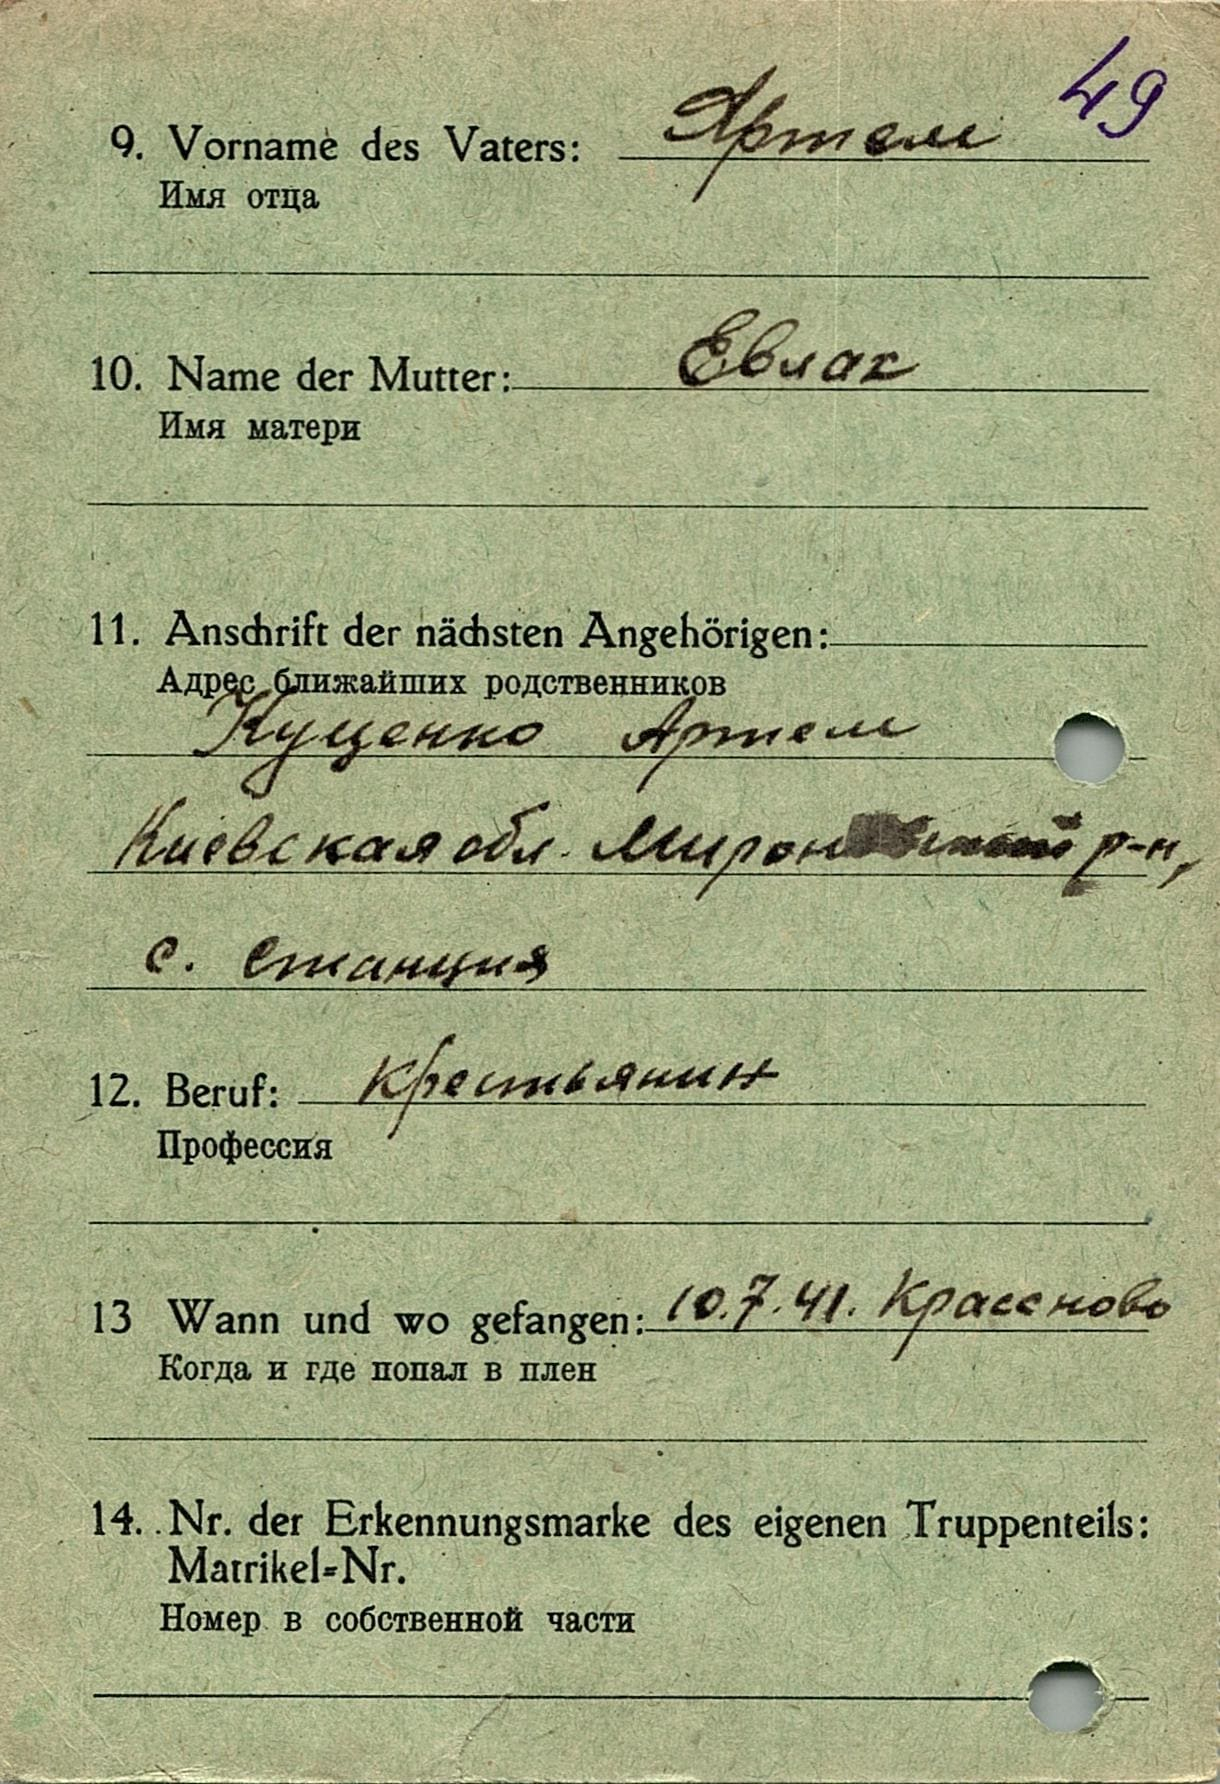 49
9. Vorname des Vaters: Артем
Имя отца
10. Name der Mutter: Евлах
Имя матери
11. Anschrift der nächsten Angehörigen:
Адрес ближайших родственников
Куценко Артем
Киевская обл. р-н,
с. станция
12. Beruf: крестьянин
Профессия
13 Wann und wo gefangen: 10.7.41. Крассново
Когда и где попал в плен
14. Nr. der Erkennungsmarke des eigenen Truppenteils:
Matrikel=Nr.
Номер в собственной части